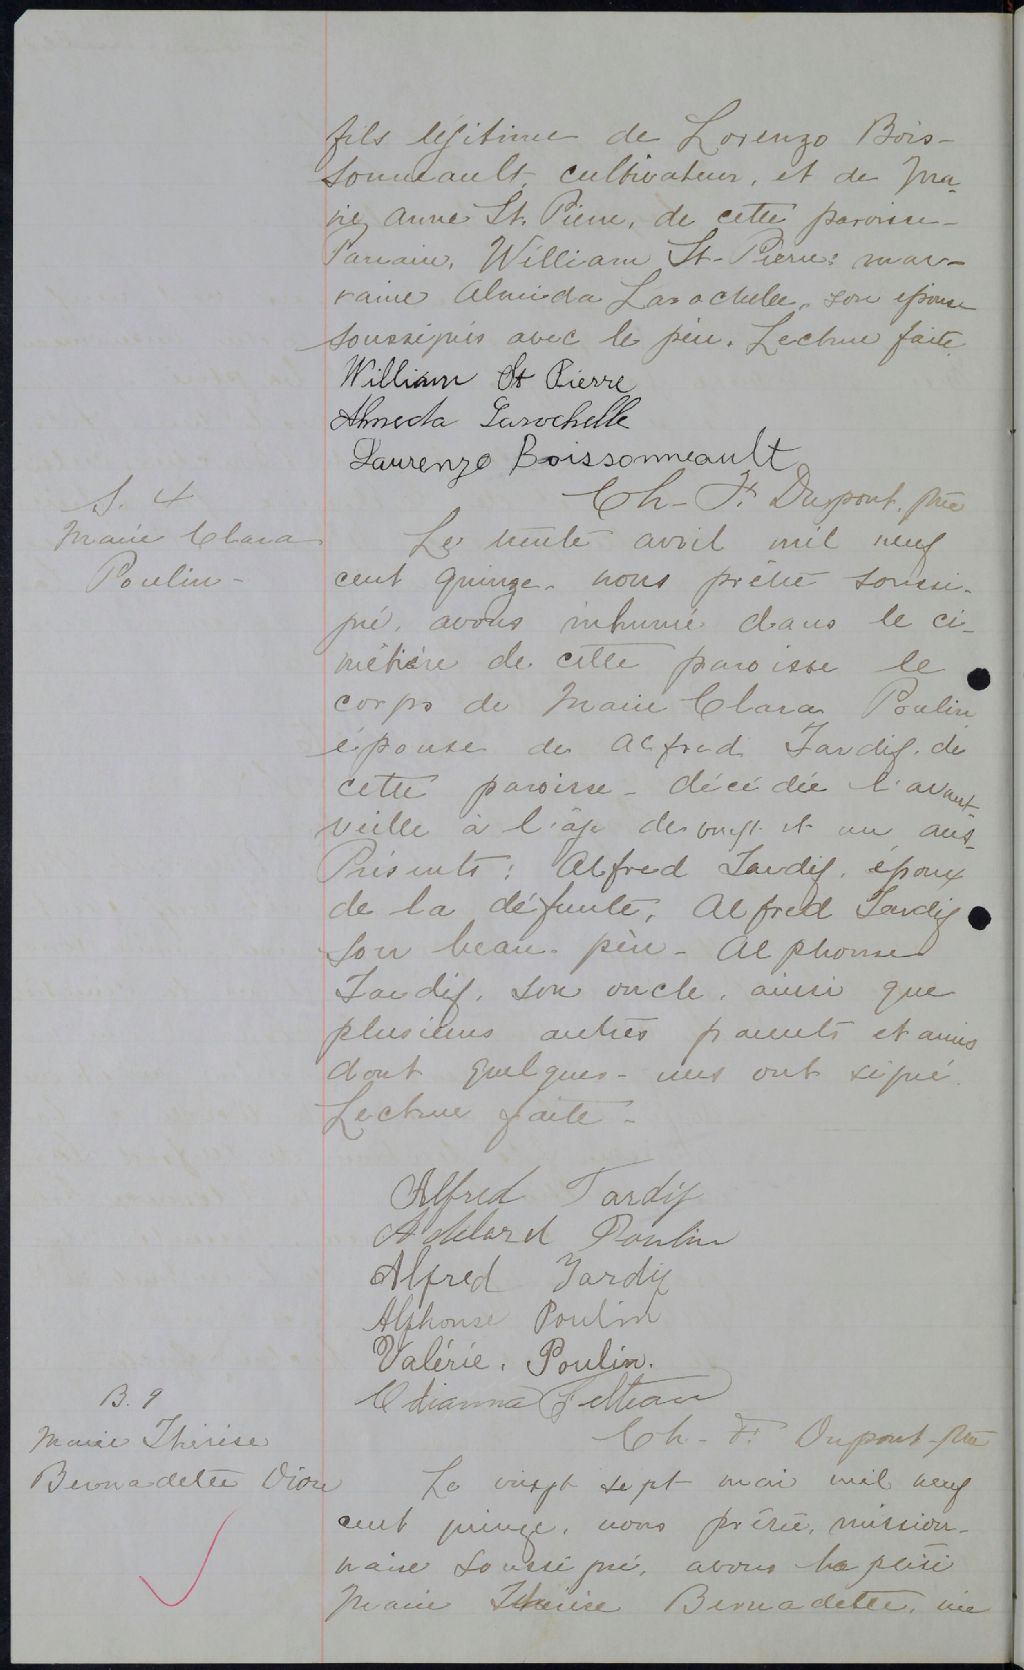 fils légitime de Lorenzo Bois-
sonneault, cultivateur, et de Ma-
rie Anne St. Pierre, de cette paroisse-
Parrain, William St-Pierre: mar-
raine Almida Larochelle, son épouse
soussignés avec le père. Lecture faite
William St Pierre
Almeda Larochelle
Laurenzo Boissonneault
Ch- F. Dupont, ptre
S. 4
Marie Clara
Poulin-
Le trente avril mil neuf
cent quinze- nous prêtre soussi-
gné, avons inhumé dans le ci-
métière de cette paroisse le
corps de Marie Clara Poulin
épouse de Alfred Tardif, de
cette paroisse- décédée l'avant-
veille à l'âge de vingt et un ans-
Présents: Alfred Tardif, époux
de la défunte, Alfred Tardif
son beau-père- Alphonse
Tardif, son oncle, ainsi que
plusieurs autres parents et amis
dont quelques-uns ont signé.
Lecture faite-
Alfred Tardif
Adélard Poulin
Alfred Tardif
Alphonse Poulin
Valérie. Poulin.
Ch- F. Dupont-ptre
B. 9
Marie Thérèse
Bernadette Dion
Le vingt sept mai mil neuf
cent quinze, nous prêtre, mission-
naire soussigné, avons baptisé
Marie Thérèse Bernadette, née